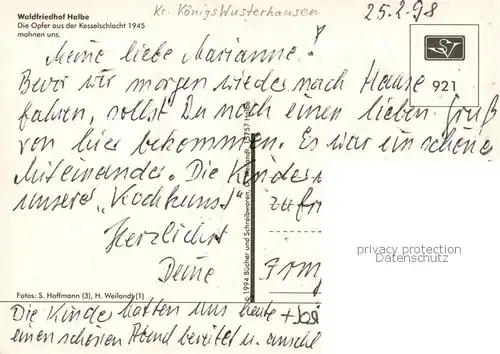 Waldfriedhof Halbe
Die Opfer aus der Kesselschlacht 1945
mahnen uns.
Kr. Königs Wusterhausen
25.2.98
921
Meine liebe Marianne!
Bevor wir morgen wieder nach Hause
fahren, sollst Du noch einen lieben Gruß
von hier bekommen. Es war ein schönes
Miteinander. Die Kinder
unserer "Kochkunst" zufri
Herzlichst
Deine
© 1994 Bücher und Schreibwaren, G. Weilandt, 15757 Halbe
privacy protection for
Fotos: S. Hoffmann (3), H. Weilandt (1)
Die Kinder hatten uns heute
einen schönen Abend bereitet u. anschl